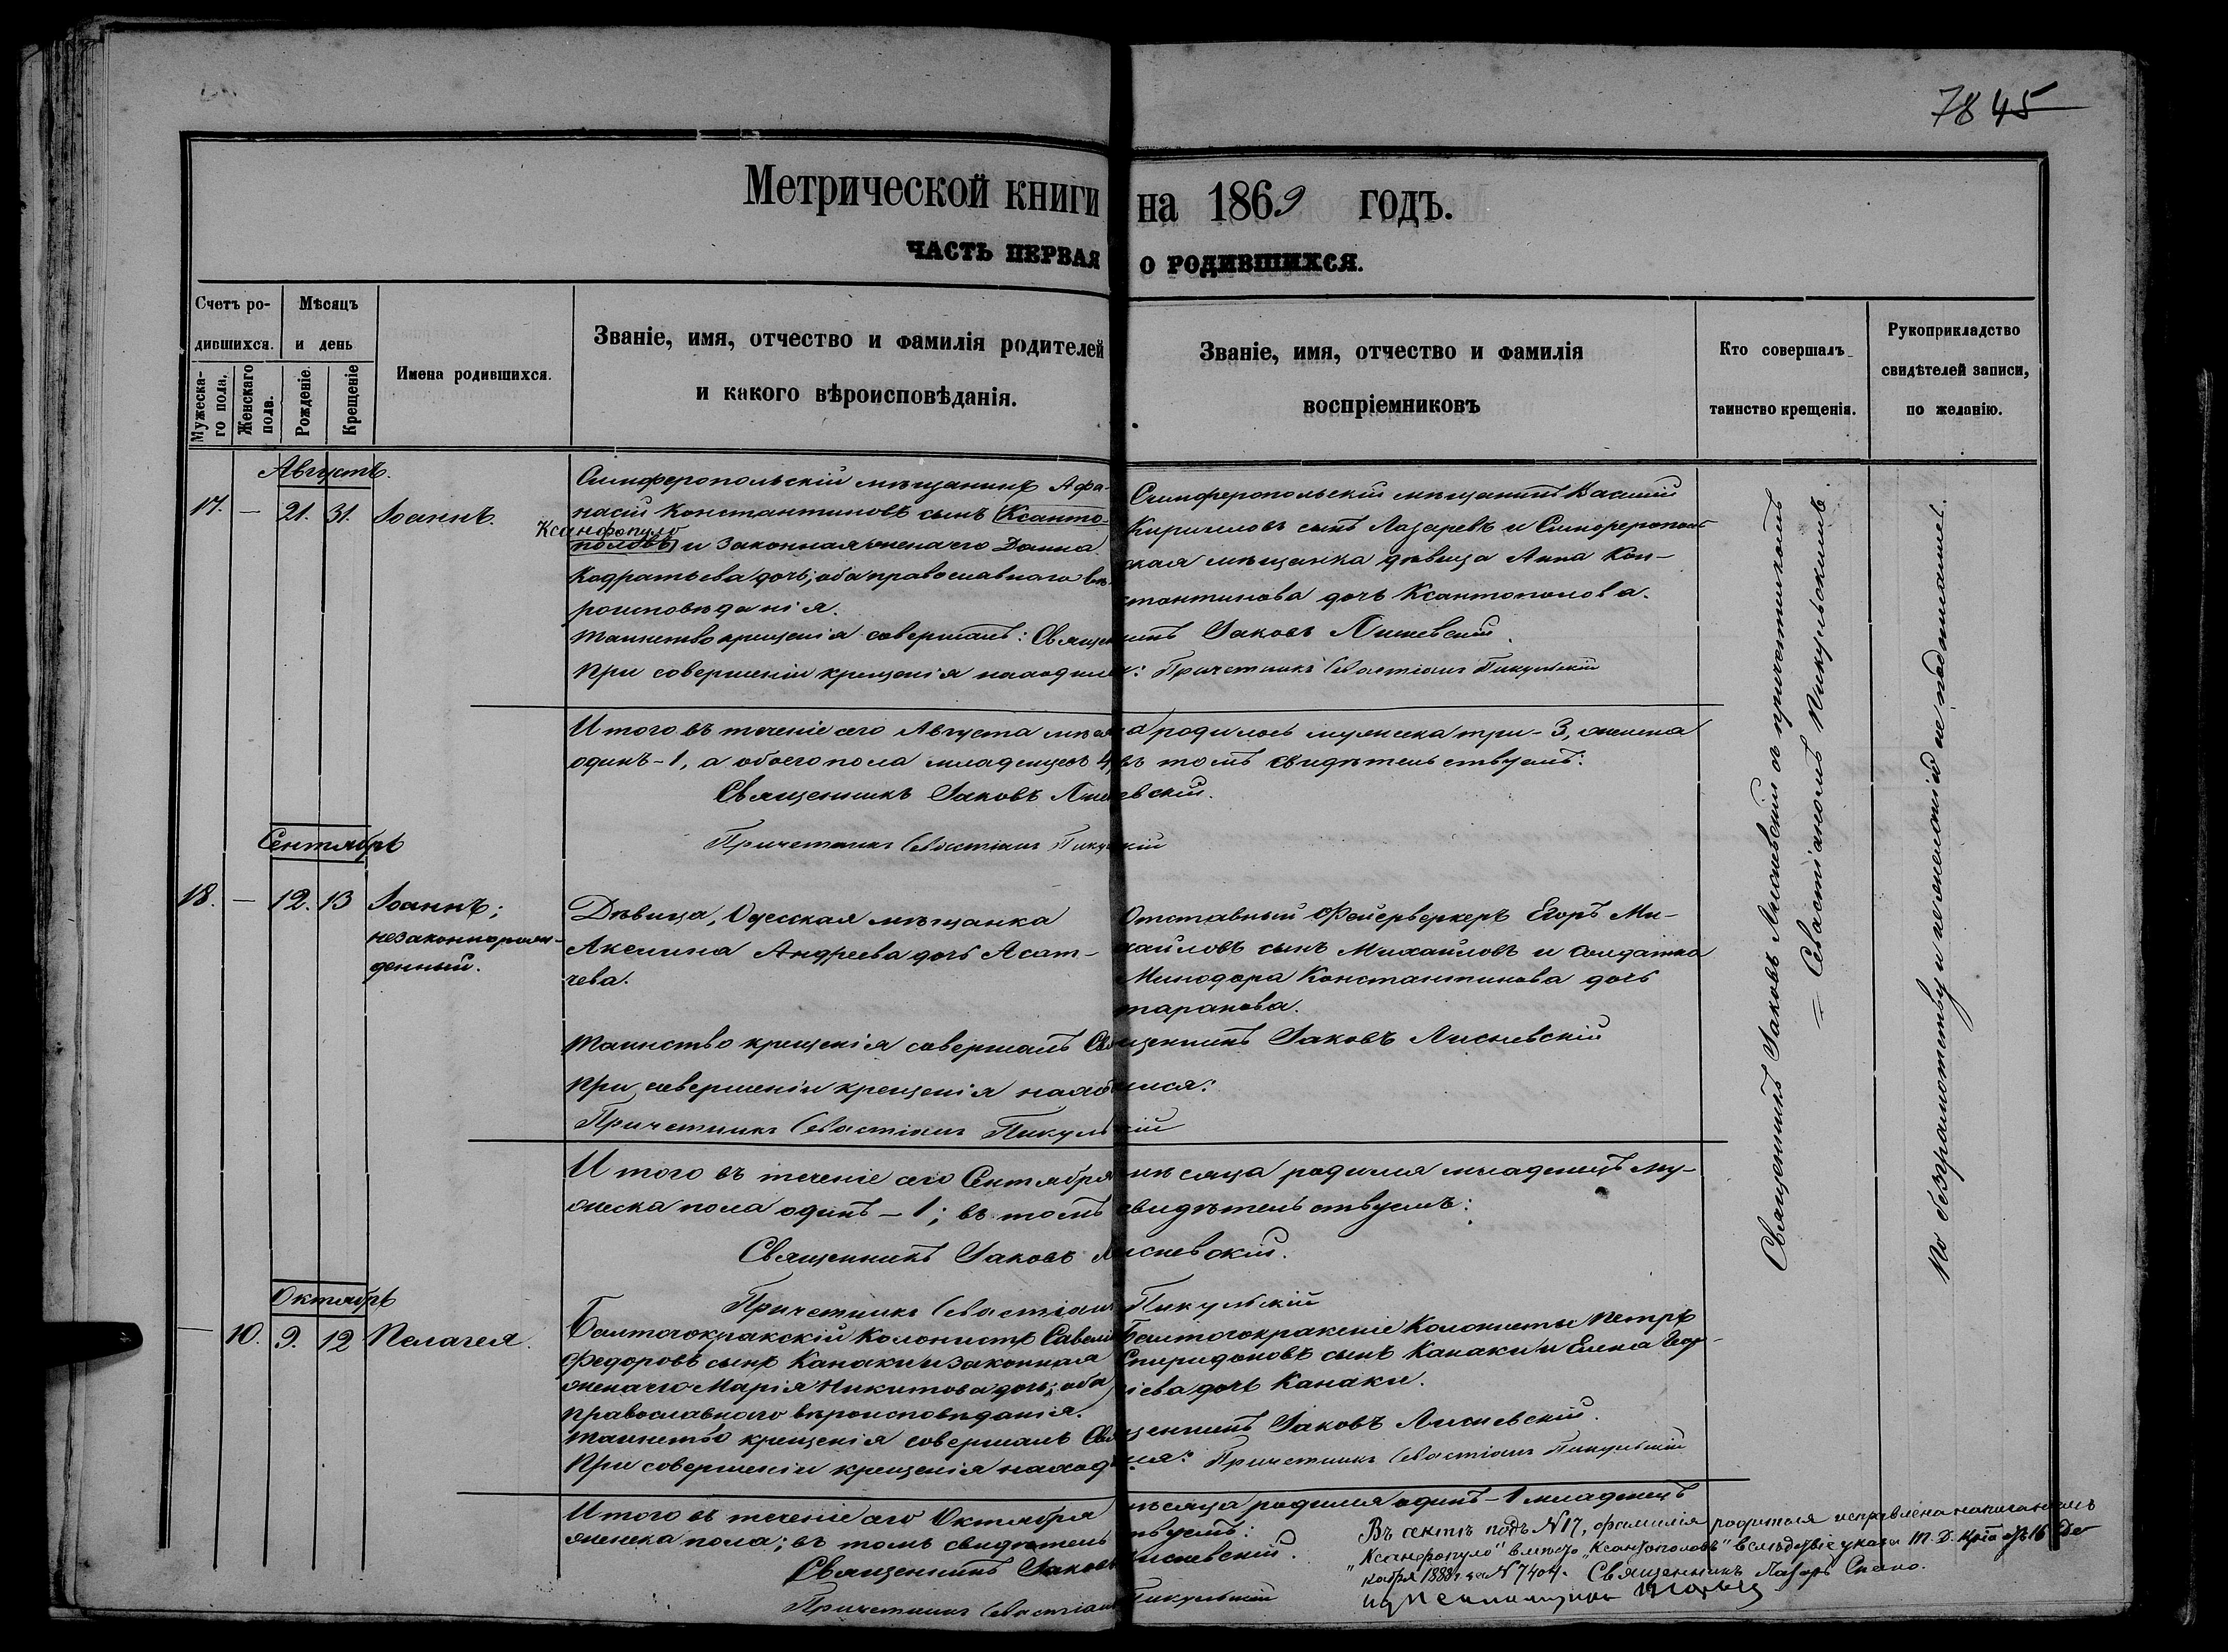 78 45
Метрической книги на 1869 годъ.
ЧАСТЬ ПЕРВАЯ О РОДИВШИХСЯ.
Счетъ ро-
дившихся.
Мужеска-
го пола.
Женскаго
пола.
Мѣсяцъ
и день
Рожденіе.
Крещеніе
Имена родившихся.
Званіе, имя, отчество и фамилія родителей
и какого вѣроисповѣданія.
Званіе, имя, отчество и фамилія
воспріемниковъ
Кто совершалъ
таинство крещенія.
Рукоприкладство
свидѣтелей записи,
по желанію.
Августъ.
17. — 21. 31. Іоаннъ.
Симферопольскій мѣщанинъ Афа-
насій Константиновъ сынъ Ксанто-
Ксанфопуло
половъ и законная жена его Домна
Кодратьева дочь; оба православнаго вѣ-
роисповѣданія.
Симферопольскій мѣщанинъ Василій
Кириловъ сынъ Лазаревъ и Симферополь-
ская мѣщанка дѣвица Анна Кон-
стантинова дочь Ксантополова.
Таинство крещенія совершалъ: Священникъ Іаковъ Лисневскій.
При совершеніи крещенія находился: Причетникъ Севастіанъ Пикульскій
Итого въ теченіе сего Августа мѣсяца родилось мужеска три-3, женска
одинъ-1, а обоего пола младенцевъ 4, въ томъ свидѣтельствуемъ:
Священникъ Іаковъ Лисневскій.
Причетникъ Севастіанъ Пикульскій
Сентябрь
18. — 12. 13 Іоаннъ;
незаконнорож-
денный.
Дѣвица, Одесская мѣщанка
Акелина Андреева дочь Асат-
чева.
Отставный Фейерверкеръ Егоръ Ми-
хайловъ сынъ Михайловъ и солдатка
Минодора Константинова дочь
Таранова.
Таинство крещенія совершалъ Священникъ Іаковъ Лисневскій
При совершеніи крещенія находился:
Причетникъ Севастіанъ Пикульскій
Итого въ теченіе сего Сентября мѣсяца родился младенецъ му-
жеска пола одинъ-1; въ томъ свидѣтельствуемъ:
Священникъ Іаковъ Лисневскій.
Причетникъ Севастіанъ Пикульскій
Октябрь
— 10. 9. 12 Пелагея.
Балтогокракскій Колонистъ Савелій
Федоровъ сынъ Канаки и законная
жена его Марія Никитова дочь; оба
православнаго вѣроисповѣданія.
Балтогокракскіе Колонисты Петръ
Спиридоновъ сынъ Канаки и Елена Геор-
гіева дочь Канаки.
Таинство крещенія совершалъ Священникъ Іаковъ Лисневскій.
При совершеніи крещенія находился: Причетникъ Севастіанъ Пикульскій
Итого въ теченіе сего Октября мѣсяца родился одинъ-1 младенецъ
женска пола; въ томъ свидѣтельствуемъ:
Священникъ Іаковъ Лисневскій.
Причетникъ Севастіанъ Пикульскій
Священникъ Іаковъ Лисневскій съ причетникомъ
— Севастіаномъ Пикульскимъ.
По безграмотству и нежеланію не подписались.
Въ актѣ подъ №17, фамилія родителя исправлена написаніемъ
„Ксанфопуло" вмѣсто „Ксантополовъ" вслѣдствіе указа Т. Д. Кр-іи отъ 16 Де-
кабря 1888 г. за № 7404. Священникъ Лазарь Спано.